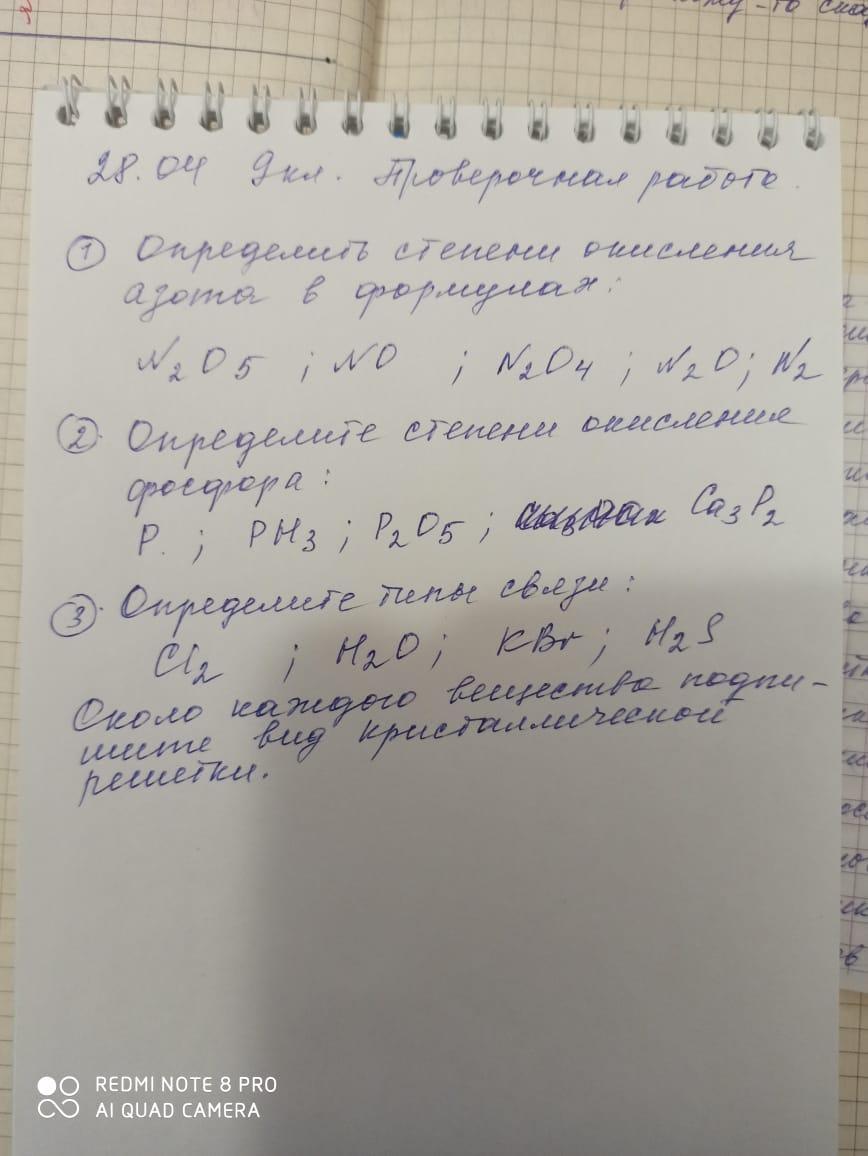 28.04 9кл. Проверочная работа.
① Определить степени окисления
азота в формулах:
N₂O₅ ; NO ; N₂O₄ ; N₂O; N₂
②. Определите степени окисления
фосфора:
P. ; PH₃ ; P₂O₅ ; Ca₃P₂
③. Определите типы связи:
Cl₂ ; H₂O; KBr; H₂S
Около каждого вещества подпи-
шите вид кристаллической
решетки.
REDMI NOTE 8 PRO
AI QUAD CAMERA